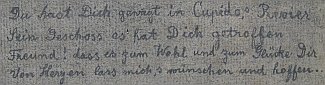 Du hast Dich gewagt in Cupido's Revier
Sein Geschoss es hat Dich getroffen
Freund! dass es zum Wohl und zum Glücke Dir
Von Herzen lass mich's wünschen und hoffen..